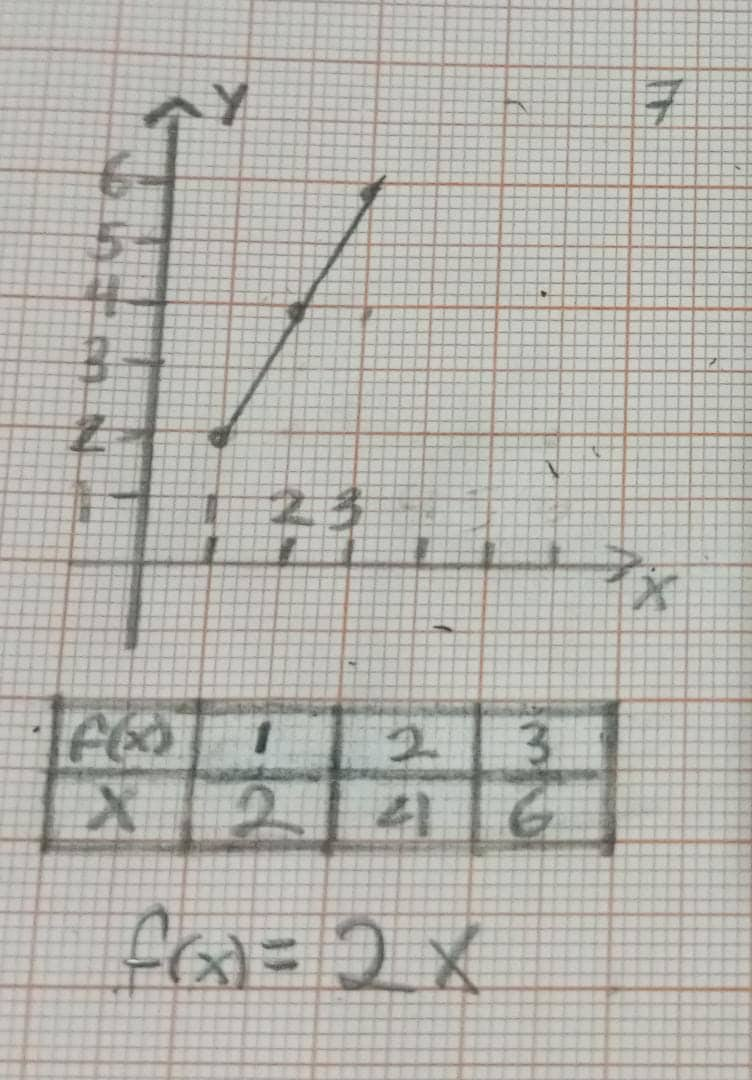 Y
7
6
5
4
3
2
1
1 2 3
X
f(x) 1 2 3
X 2 4 6
f(x) = 2X